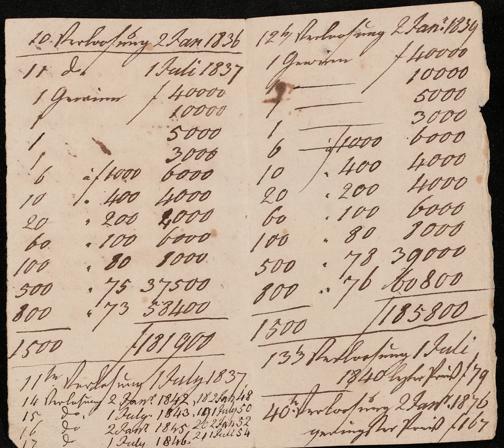 10. Verloosung 2 Jan 1836
11 do. 1 Juli 1837
1 Gewinn f 40000
1 10000
1 5000
1 3000
6 à f1000 6000
10 " 400 4000
20 " 200 4000
60 " 100 6000
100 " 80 8000
500 " 75 37500
800 " 73 58400
1500 f181900
11te Verlosung 1 July 1837
14 Verlosung 2 Janr 1842
15 do. 1 July 1843
16 do. 2 Janr 1845
17 do. 1 July 1846
12te Verloosung 2 Janr 1839
1 Gewinn f 40000
1 10000
1 5000
1 3000
6 à f1000 6000
10 " 400 4000
20 " 200 4000
60 " 100 6000
100 " 80 8000
500 " 78 39000
800 " 76 60800
1500 f185800
13te Verloosung 1 Juli
1840 f 79
40te Verloosung 2 Janr 1876
f 167